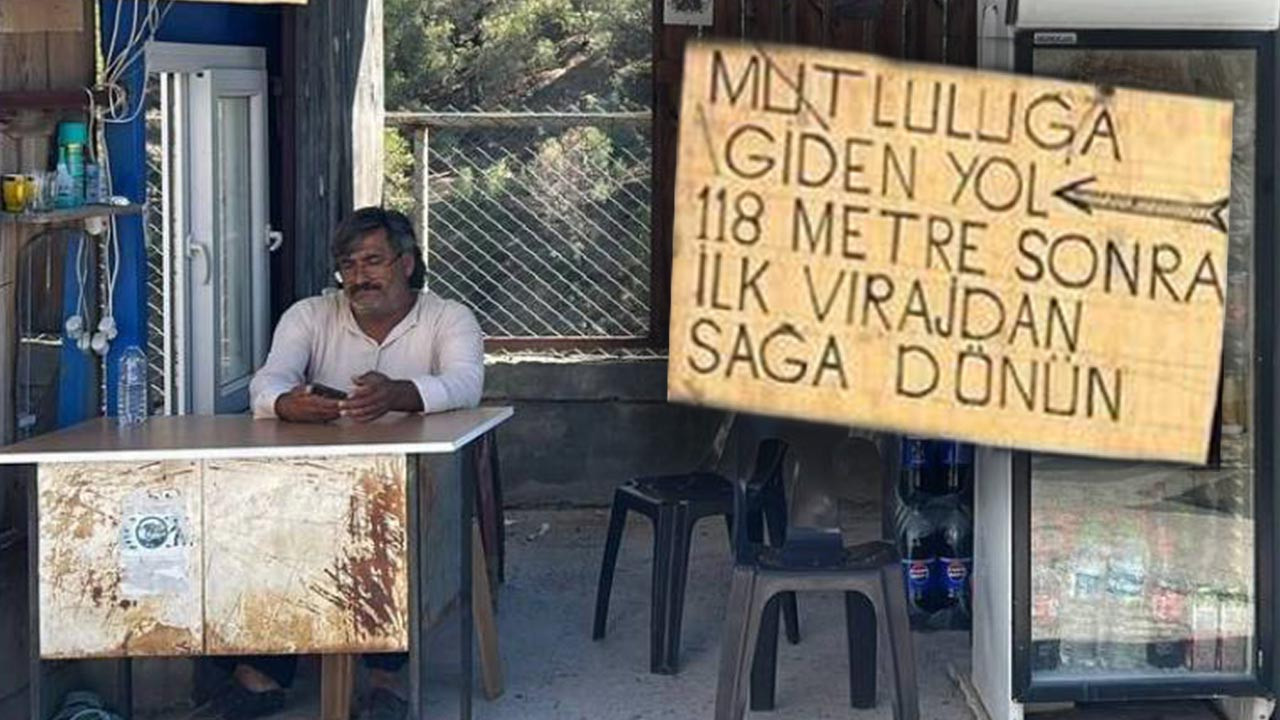 MUTLULUĞA
GİDEN YOL
118 METRE SONRA
İLK VİRAJDAN
SAĞA DÖNÜN